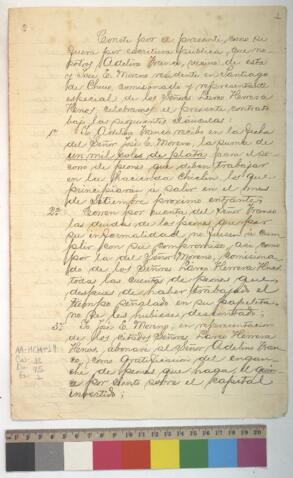 Conste por el presente, como si
fuera por escritura pública, que no-
sotros Adelino Franco, vecino de esta
y José E. Moreno residente en Santiago
de Chuco, comisionado y representante
especial de los Señores Larco Herrera
Hnos. celebramos el presente contrato
bajo las siguientes cláusulas:
1ª Yo Adelino Franco recibo en la fecha
del Señor José E. Moreno, la suma de
un mil soles de plata, para el soco-
rro de peones que deben trabajar
en la Hacienda Chiclin, los que
principiarán a salir en el mes
de Setiembre próximo entrante;
2ª Corren por cuenta del Señor Franco
las deudas de los peones que por
su informalidad no fuesen a cum-
plir con su compromiso, así como
por la del Señor Moreno, comisiona-
do de los Señores Larco Herrera Hnos.
todas las cuentas de peones que
después de haber trabajado el
tiempo señalado en su papeleta,
no se les hubiese descontado;
3ª Yo José E. Moreno, en representación
de los citados Señores Larco Herrera
Hnos. abonaré al Señor Adelino Fran-
co, como gratificación del engan-
che de peones que haga, el quin-
ce por ciento sobre el capital
invertido;